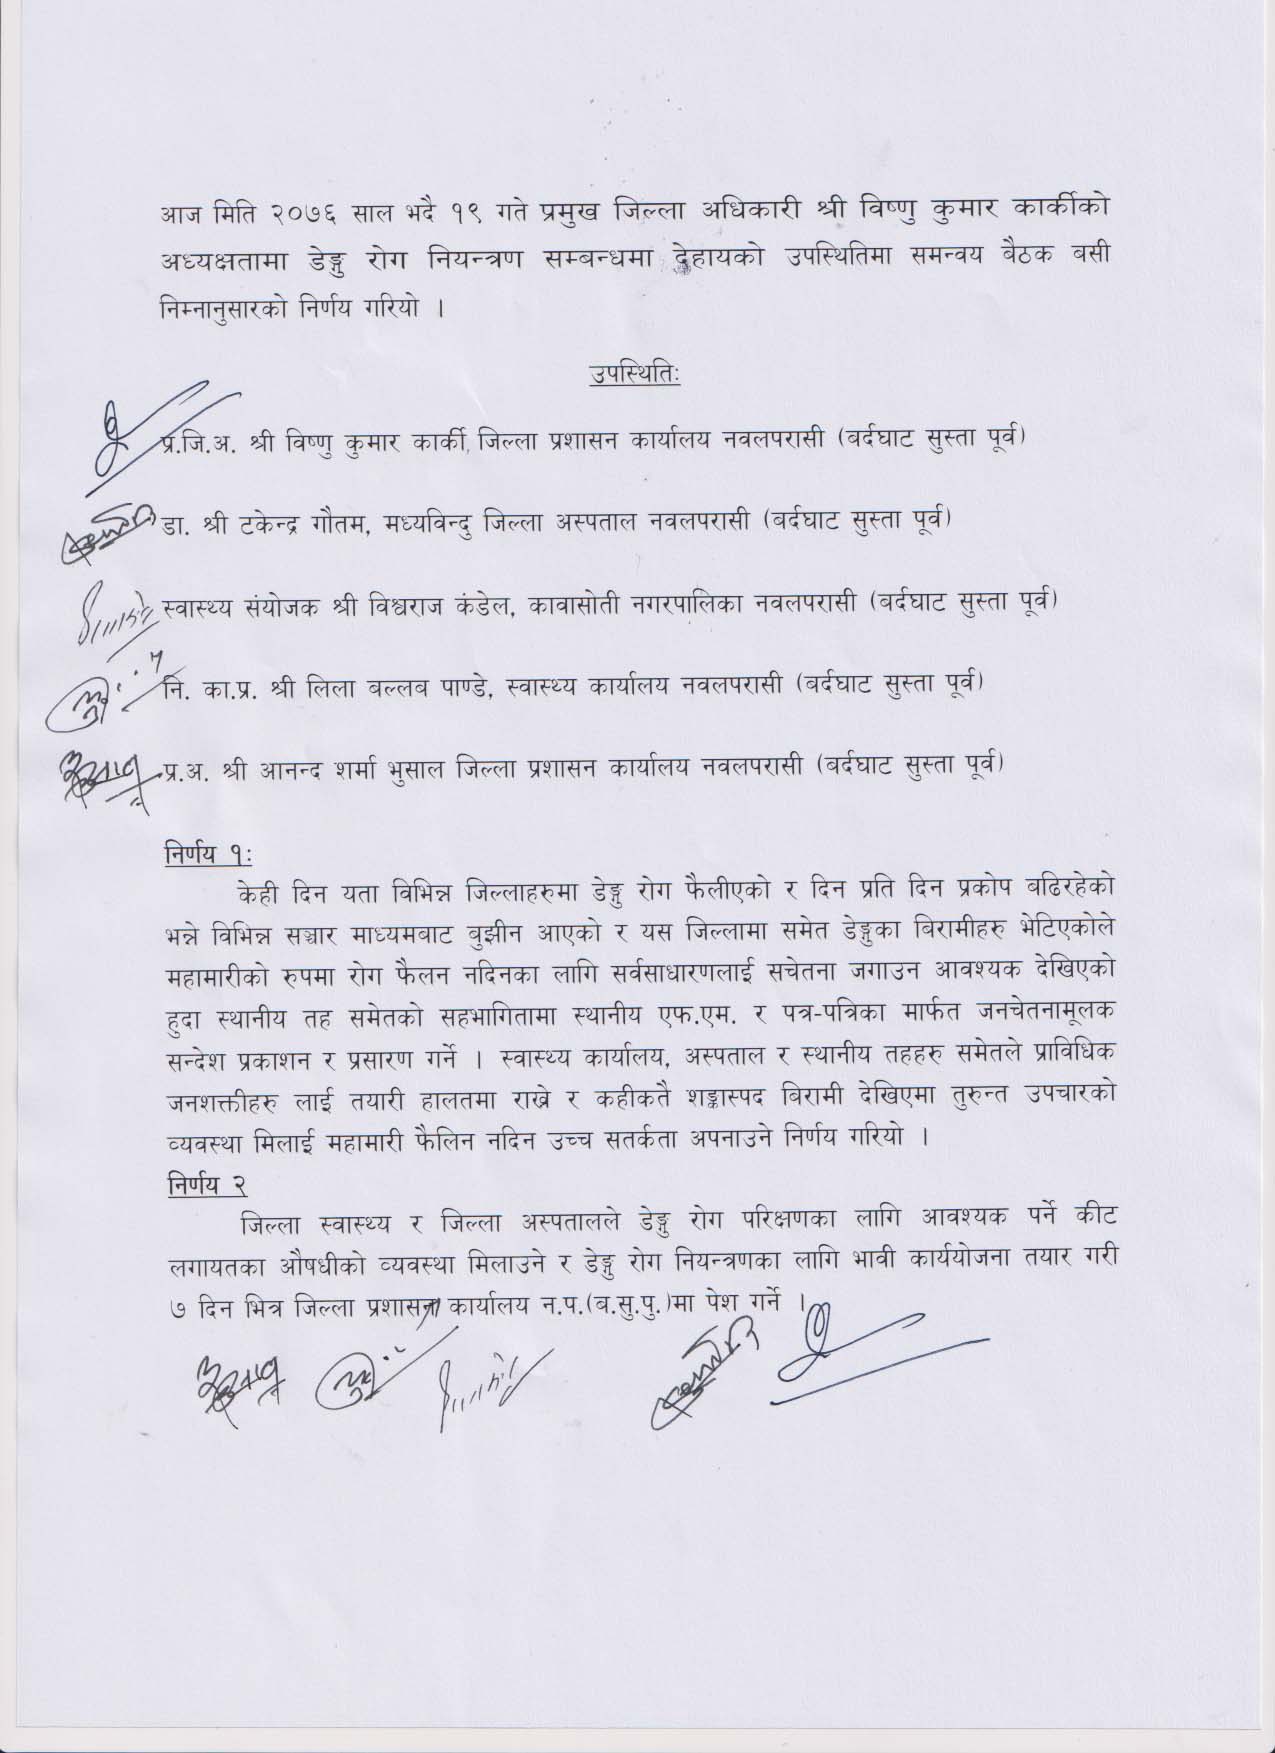 आज मिति २०७६ साल भदै १९ गते प्रमुख जिल्ला अधिकारी श्री विष्णु कुमार कार्कीको
अध्यक्षतामा डेङ्गु रोग नियन्त्रण सम्बन्धमा देहायको उपस्थितिमा समन्वय बैठक बसी
निम्नानुसारको निर्णय गरियो ।
उपस्थितिः
प्र.जि.अ. श्री विष्णु कुमार कार्की, जिल्ला प्रशासन कार्यालय नवलपरासी (बर्दघाट सुस्ता पूर्व)
डा. श्री टकेन्द्र गौतम, मध्यविन्दु जिल्ला अस्पताल नवलपरासी (बर्दघाट सुस्ता पूर्व)
स्वास्थ्य संयोजक श्री विश्वराज कंडेल, कावासोती नगरपालिका नवलपरासी (बर्दघाट सुस्ता पूर्व)
नि. का.प्र. श्री लिला बल्लब पाण्डे, स्वास्थ्य कार्यालय नवलपरासी (बर्दघाट सुस्ता पूर्व)
प्र.अ. श्री आनन्द शर्मा भुसाल जिल्ला प्रशासन कार्यालय नवलपरासी (बर्दघाट सुस्ता पूर्व)
निर्णय १ः
केही दिन यता विभिन्न जिल्लाहरुमा डेङ्गु रोग फैलीएको र दिन प्रति दिन प्रकोप बढिरहेको
भन्ने विभिन्न सञ्चार माध्यमबाट बुझीन आएको र यस जिल्लामा समेत डेङ्गुका बिरामीहरु भेटिएकोले
महामारीको रुपमा रोग फैलन नदिनका लागि सर्वसाधारणलाई सचेतना जगाउन आवश्यक देखिएको
हुदा स्थानीय तह समेतको सहभागितामा स्थानीय एफ.एम. र पत्र-पत्रिका मार्फत जनचेतनामूलक
सन्देश प्रकाशन र प्रसारण गर्ने । स्वास्थ्य कार्यालय, अस्पताल र स्थानीय तहहरु समेतले प्राविधिक
जनशक्तीहरु लाई तयारी हालतमा राख्ने र कहीकतै शङ्कास्पद बिरामी देखिएमा तुरुन्त उपचारको
व्यवस्था मिलाई महामारी फैलिन नदिन उच्च सतर्कता अपनाउने निर्णय गरियो ।
निर्णय २
जिल्ला स्वास्थ्य र जिल्ला अस्पतालले डेङ्गु रोग परिक्षणका लागि आवश्यक पर्ने कीट
लगायतका औषधीको व्यवस्था मिलाउने र डेङ्गु रोग नियन्त्रणका लागि भावी कार्ययोजना तयार गरी
७ दिन भित्र जिल्ला प्रशासन कार्यालय न.प.(ब.सु.पु.)मा पेश गर्ने ।